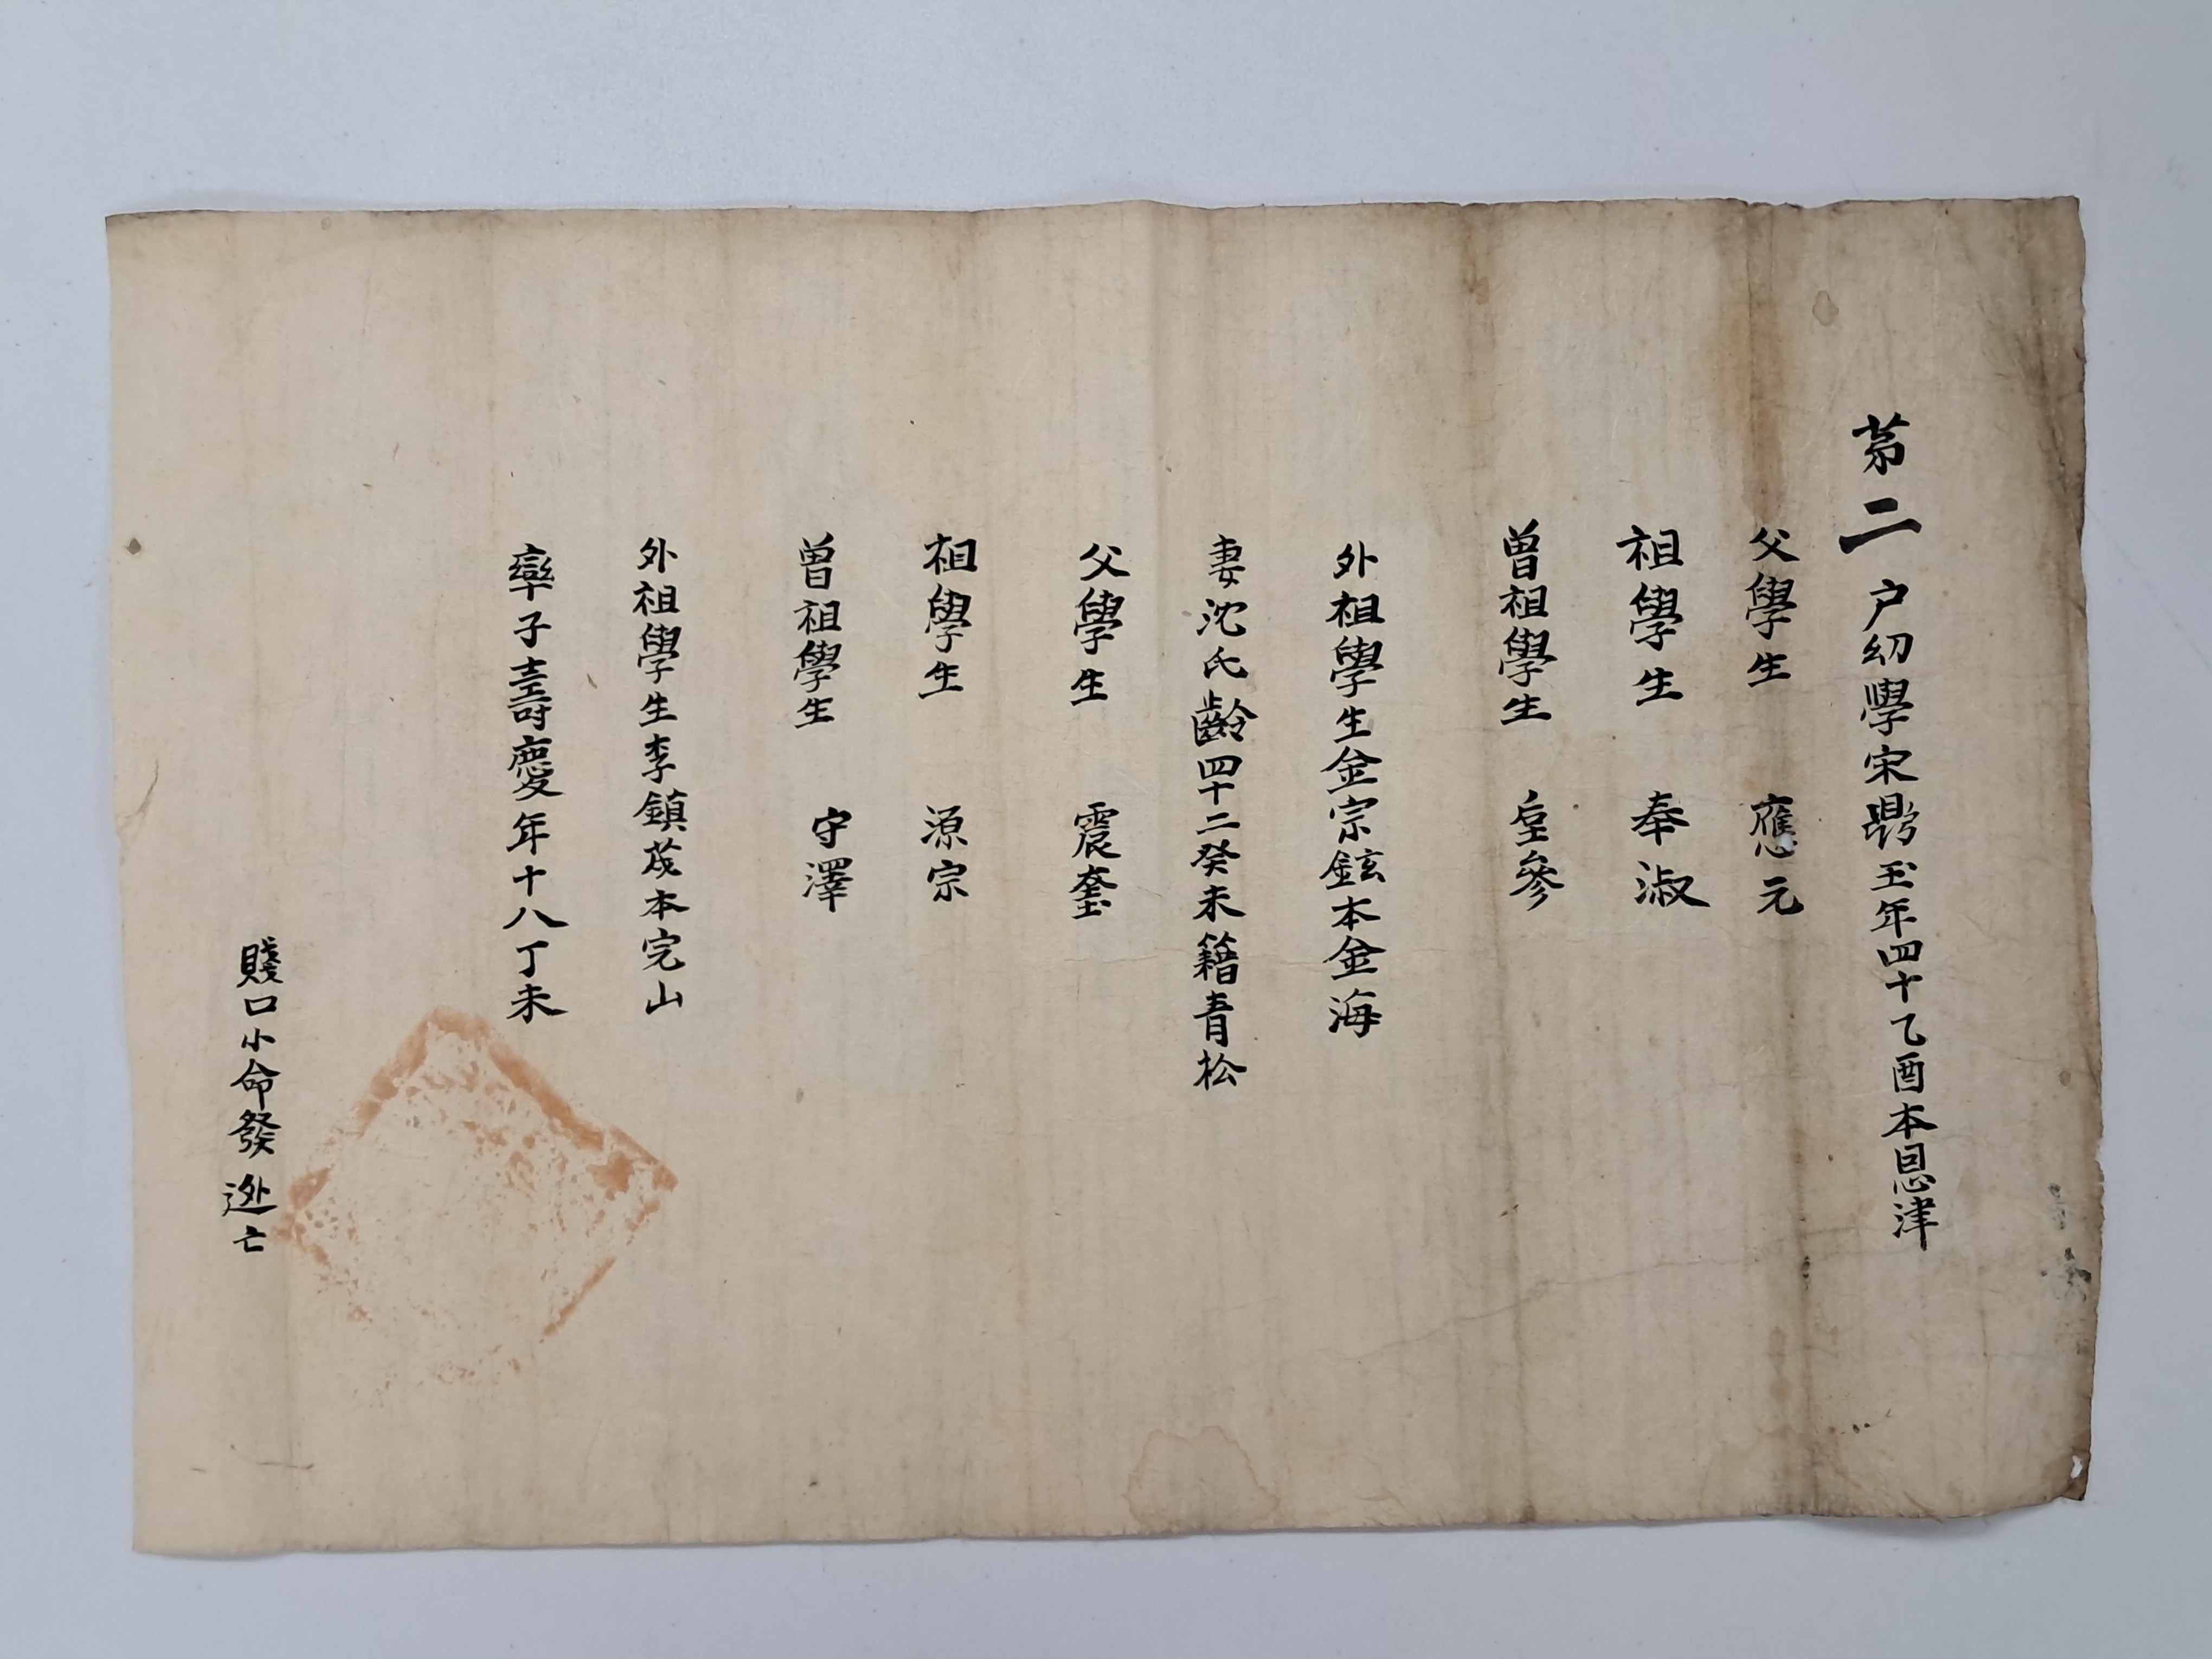 第二戶幼學宋鼎玉年四十乙酉本恩津
父學生 應元
祖學生 奉淑
曾祖學生 參
外祖學生金宗鉉本金海
妻沈氏齡四十二癸未籍青松
父學生 震奎
祖學生 源宗
曾祖學生 守澤
外祖學生李鎮茂本完山
率子壽慶年十八丁未
賤口小命發逃亡